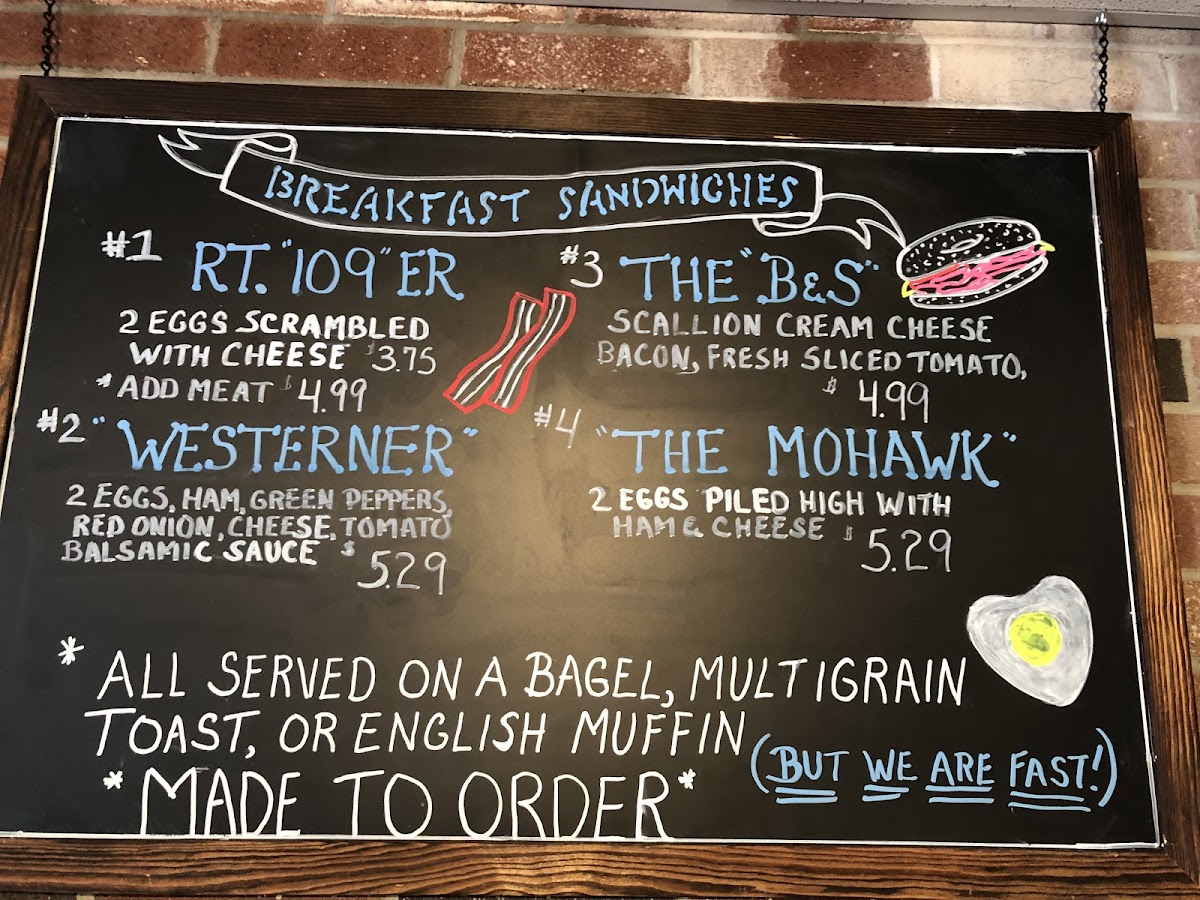 BREAKFAST SANDWICHES
#1 RT. "109" ER
2 EGGS SCRAMBLED
WITH CHEESE $3.75
* ADD MEAT $4.99
#2 "WESTERNER"
2 EGGS, HAM, GREEN PEPPERS,
RED ONION, CHEESE, TOMATO
BALSAMIC SAUCE $
5.29
#3 THE "B&S"
SCALLION CREAM CHEESE
BACON, FRESH SLICED TOMATO,
$4.99
#4 "THE MOHAWK"
2 EGGS PILED HIGH WITH
HAM & CHEESE $5.29
* ALL SERVED ON A BAGEL, MULTIGRAIN
TOAST, OR ENGLISH MUFFIN
*MADE TO ORDER*
(BUT WE ARE FAST!)